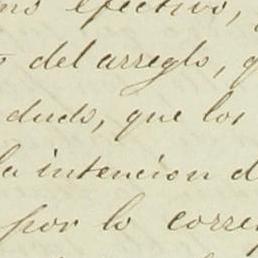 efectivo,
del arreglo,
dudo, que los
la intencion d
por lo corre